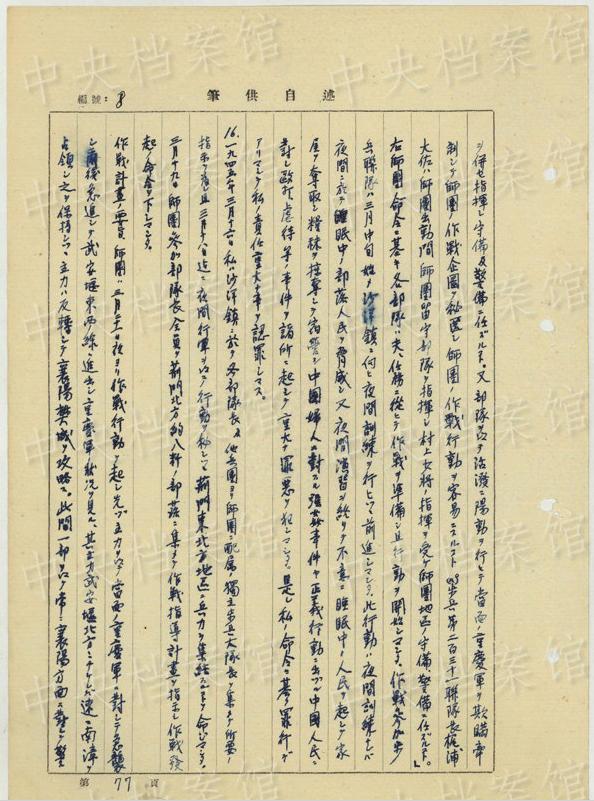 中央档案馆
編號：8
筆供自述
ヲ併セ指揮シ守備及警備ニ任ズルト。又部隊ヲ以テ活溌ニ陽動ヲ行ヒテ當面ノ重慶軍ヲ欺瞞牽
制シテ師團ノ作戰企圖ヲ秘匿シ師團ノ作戰行動ヲ容易ニスルコト 步兵第二百三十一聯隊長梶浦
大佐ハ師團出動間師團留守部隊ヲ指揮シ村上少將ノ指揮ヲ受ケ師團地區ノ守備、警備ニ任ズルト。」
右師團命令ニ基キ各部隊ハ夫々任務ニ從ヒテ作戰ヲ準備シ且行動ヲ開始シマシタ。作戰參加步
兵聯隊ハ三月中旬始メ沙洋鎮ニ向ヒ夜間訓練ヲ行ヒツヽ前進シマシタ。此行動ハ夜間訓練ナレバ
夜間ニ於テ睡眠中ノ部落人民ヲ脅威シ又夜間演習ヲ終リテ不意ニ睡眠中ノ人民ヲ起シテ家
屋ヲ奪取シ糧秣ヲ掠奪シテ宿營シ中國婦人ニ對スル強姦事件ヤ正義行動ニ出デル中國人民ニ
對シ毆打、虐待等ノ事件ヲ諸所ニ起シテ重大ナ罪惡ヲ犯シマシタ。是レ私ノ命令ニ基ク罪行デ
アリマシテ私ノ責任重大ナ事ヲ認罪シマス。
16.一九四五年三月十六日私ハ沙洋鎮ニ於テ各部隊長及他兵團ヨリ師團ニ配属ノ獨立步兵大隊長ヲ集メテ所要ノ
指示ヲ與ヘ且三月十八日迄ニ夜間行軍ヲ以テ行動ヲ秘シツヽ荊門東北方地區ニ兵力ヲ集結スルコトヲ命ジマシタ。
三月十九日師團ノ參加部隊長全員ヲ荊門北方約八粁ノ部落ニ集メテ作戰指導計畫ヲ指示シ作戰發
起ノ命令ヲ下シマシタ。
作戰計畫ノ要旨 師團ハ三月二十一日夜ヨリ作戰行動ヲ起シ先ヅ主力ヲ以テ當面ノ重慶軍ニ對シテ急襲
シ爾後急進シテ武安堰東西線ニ進出シ重慶軍ノ狀況ヲ見テ其主力武安堰北方ニナケレバ速ニ南漳ヲ
占領シ之ヲ保持シツヽ主力ハ反轉シテ襄陽樊城ヲ攻略ス。此間一部ヲ以テ常ニ襄陽方面ニ對シテ警
第77頁